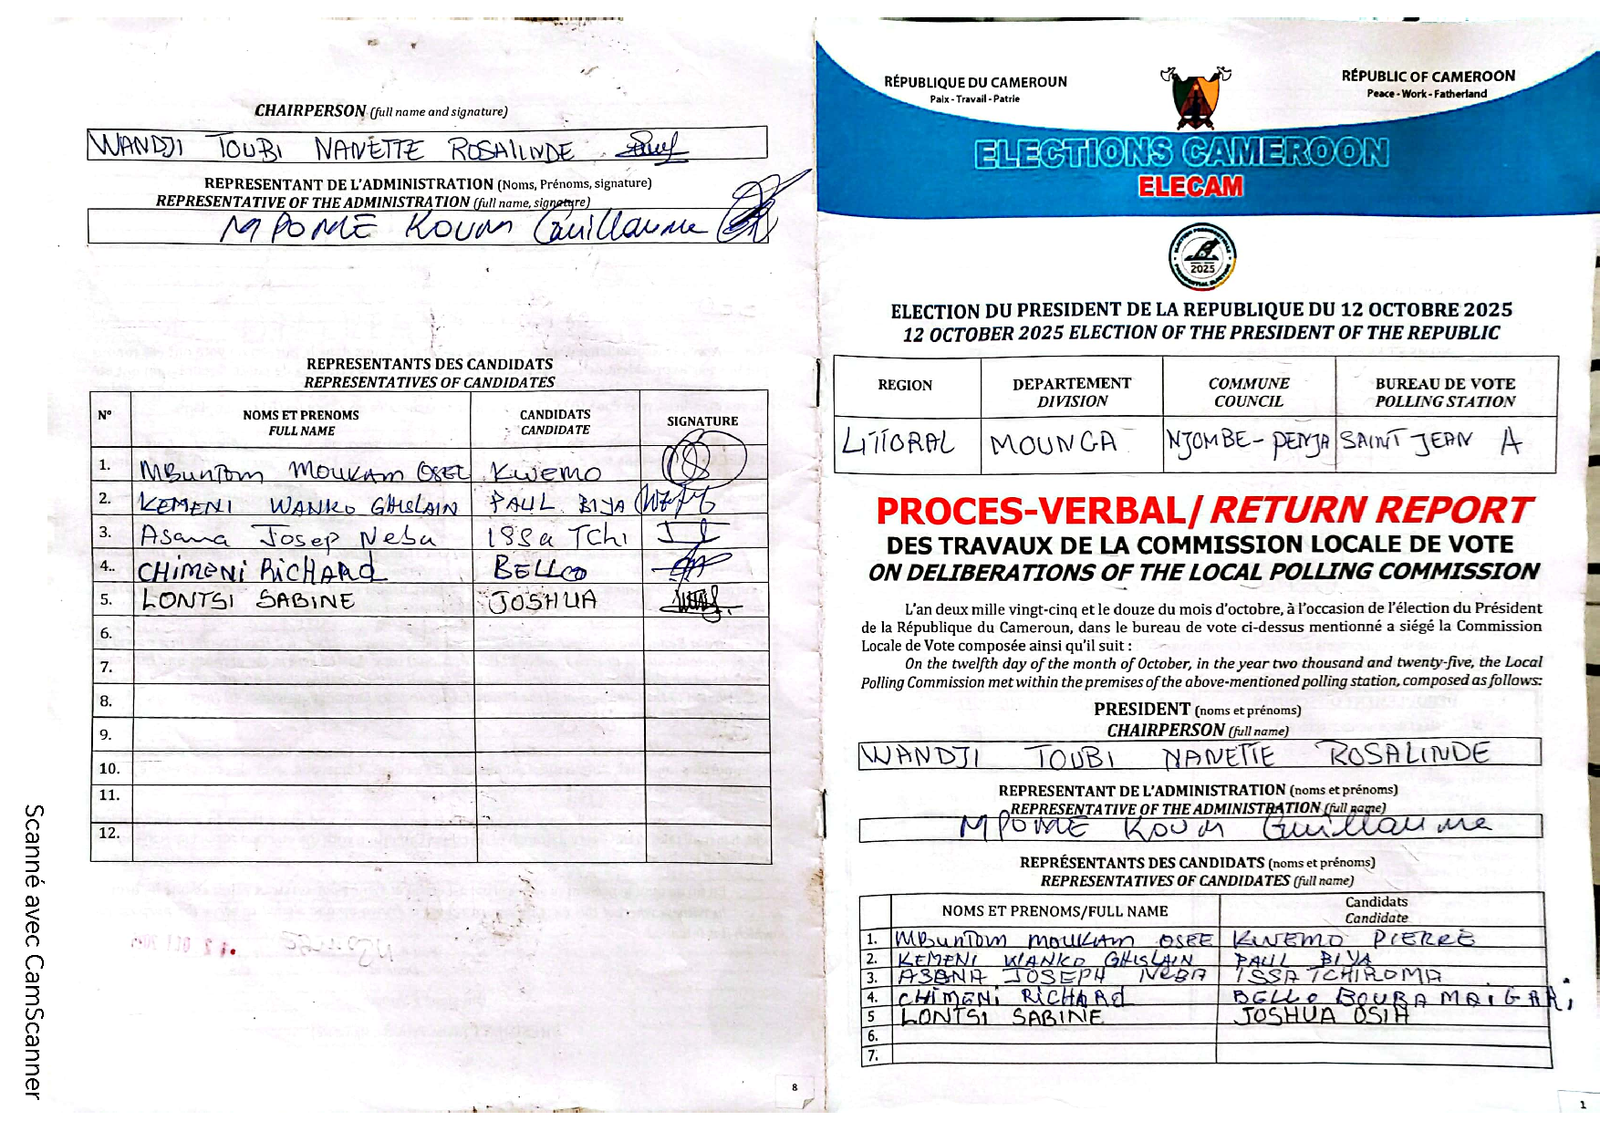 CHAIRPERSON (full name and signature)
WANDJI TOUBI NANETTE ROSALINDE
REPRESENTANT DE L'ADMINISTRATION (Noms, Prénoms, signature)
REPRESENTATIVE OF THE ADMINISTRATION (full name, signature)
MPOME KOUM Guillaume
REPRESENTANTS DES CANDIDATS
REPRESENTATIVES OF CANDIDATES
N° NOMS ET PRENOMS FULL NAME CANDIDATS CANDIDATE SIGNATURE
1. MBuntom MOUKAM OSEE KWEMO
2. KEMENI WANKO GHISLAIN PAUL BIYA
3. Asana Josep Neba ISSa TChi
4. CHIMENI RICHARD BELLO
5. LONTSI SABINE JOSHUA
6.
7.
8.
9.
10.
11.
12.
8
Scanné avec CamScanner
RÉPUBLIQUE DU CAMEROUN
Paix - Travail - Patrie
RÉPUBLIC OF CAMEROON
Peace - Work - Fatherland
ELECTIONS CAMEROON
ELECAM
2025
ELECTION DU PRESIDENT DE LA REPUBLIQUE DU 12 OCTOBRE 2025
12 OCTOBER 2025 ELECTION OF THE PRESIDENT OF THE REPUBLIC
REGION DEPARTEMENT DIVISION COMMUNE COUNCIL BUREAU DE VOTE POLLING STATION
LITTORAL MOUNGA NJOMBE-PENJA SAINT JEAN A
PROCES-VERBAL/RETURN REPORT
DES TRAVAUX DE LA COMMISSION LOCALE DE VOTE
ON DELIBERATIONS OF THE LOCAL POLLING COMMISSION
L'an deux mille vingt-cinq et le douze du mois d'octobre, à l'occasion de l'élection du Président
de la République du Cameroun, dans le bureau de vote ci-dessus mentionné a siégé la Commission
Locale de Vote composée ainsi qu'il suit :
On the twelfth day of the month of October, in the year two thousand and twenty-five, the Local
Polling Commission met within the premises of the above-mentioned polling station, composed as follows:
PRESIDENT (noms et prénoms)
CHAIRPERSON (full name)
WANDJI TOUBI NANETTE ROSALINDE
REPRESENTANT DE L'ADMINISTRATION (noms et prénoms)
REPRESENTATIVE OF THE ADMINISTRATION (full name)
MPOME KOUM Guillaume
REPRÉSENTANTS DES CANDIDATS (noms et prénoms)
REPRESENTATIVES OF CANDIDATES (full name)
NOMS ET PRENOMS/FULL NAME Candidats Candidate
1. MBuntom MOUKAM OSEE KWEMO PIERRE
2. KEMENI WANKO GHISLAIN PAUL BIYA
3. ASANA JOSEPH NEBA ISSA TCHIROMA
4. CHIMENI RICHARD BELLO BOUBA MAIGARI
5 LONTSI SABINE JOSHUA OSIH
6.
7.
1